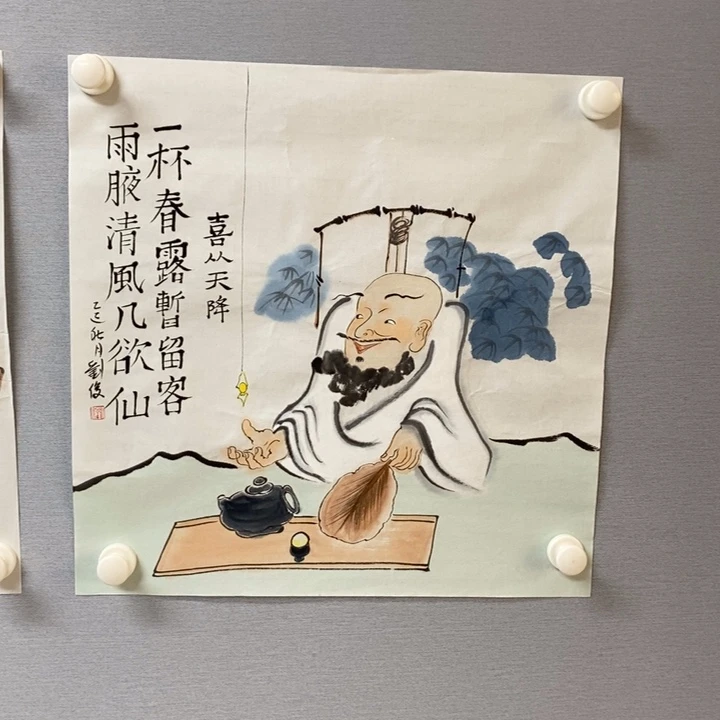 喜从天降
一杯春露暫留客
雨腋清風几欲仙
乙巳秋月劉俊